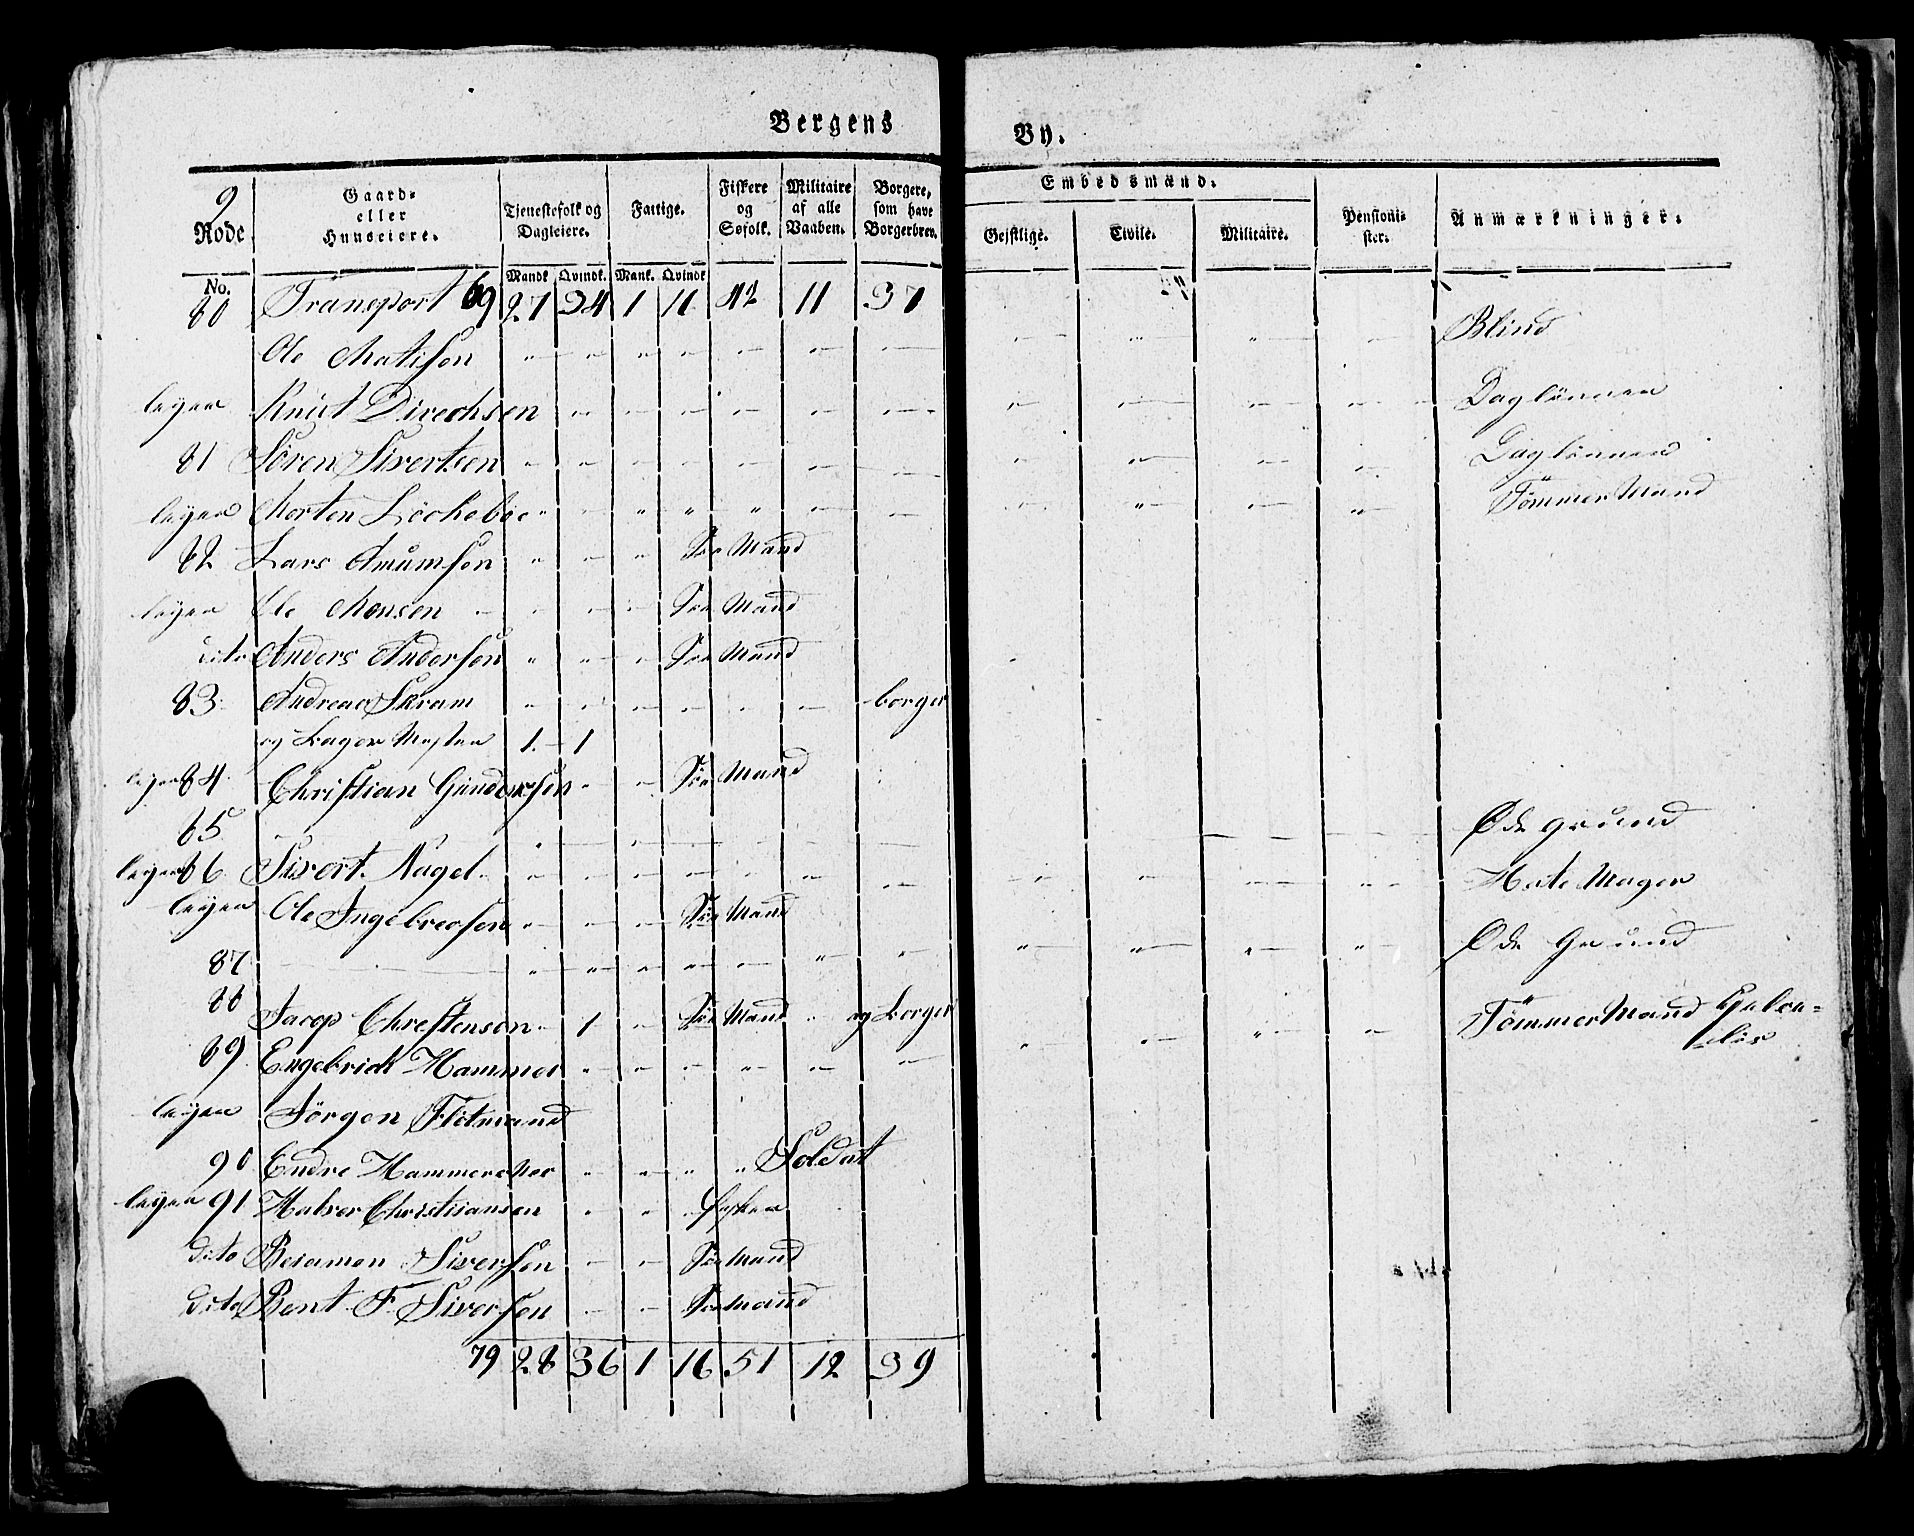 Bergens By.
9 Rode. No. Gaard- eller Huuseiere. Tjenestefolk og Dagleiere. Mandk. Qvindk. Fattige. Mank. Qvindk. Fiskere og Søfolk. Militaire af alle Vaaben. Borgere, som have Borgerbrev. Embedsmænd. Gejstlige. Civile. Militaire. Pensionister. Anmærkninger.
Transport 69 27 34 1 11 42 11 37
80 Ole Matisen Blind
leyer Knut Direchsen Daglønner
81 Søren Sivertsen Daglønner
leyer Morten Løchebøe Tömmer Mand
82 Lars Amumsen Søe Mand
leyer Ole Monsen Søe Mand
dito Anders Andersen Søe Mand
83 Andreas Skram borger
og Lager Mester 1 1
leyer 84 Christian Gundersen Søe Mand
85 Øde grund
leyer 86 Sivert Nagel Hate Mager
leyer Ole Ingebrectsen Søe Mand
87 Øde Grund
88 Jacop Christensen 1 Søe Mand og borger
89 Engebrict Hammer Tömmer Mand
leyer Jörgen Flotmand
90 Endre Hammers Soldat
leyer 91 Halvor Christiansen fysker
dito Beiamen Siversen Søe Mand
dito Bent F. Siversen Søe Mand
79 28 36 1 16 51 12 39